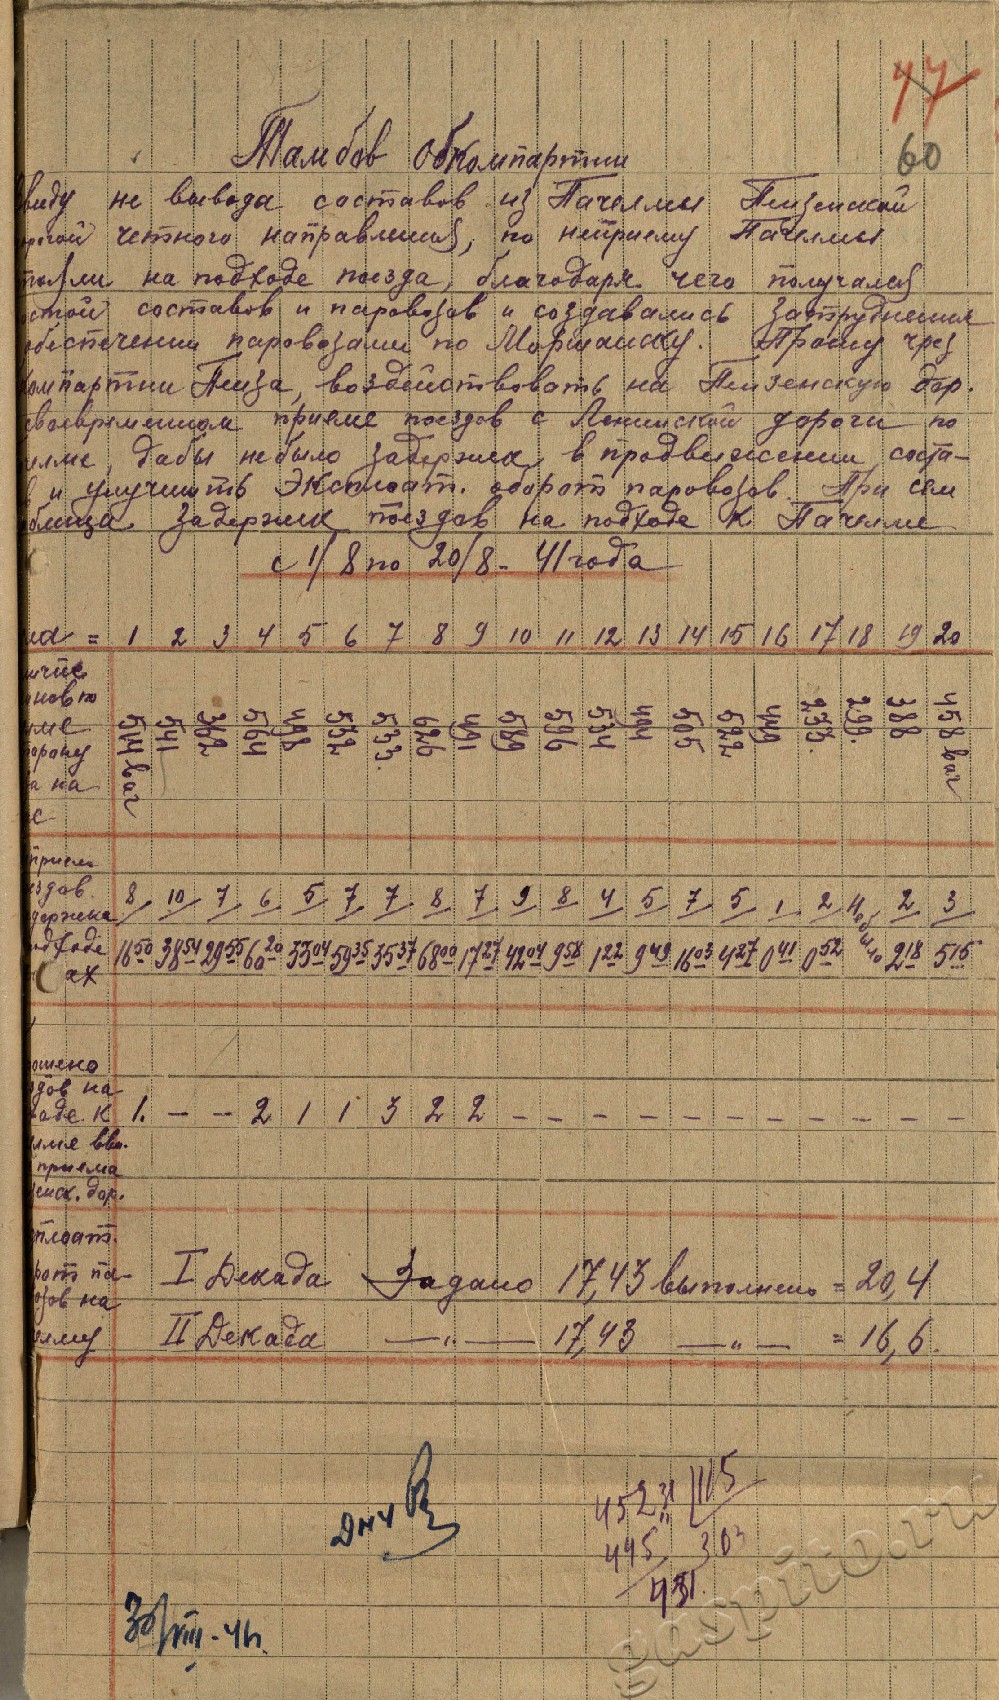 47
60
Тамбов обкомпартии
виду не вывода составов из Пачелмы Пензенской
рогой четного направления, по неприему Пачелмы
тояли на подходе поезда, благодаря чего получался
остой составов и паровозов и создавались затруднения
обеспечении паровозами по Моршанску. Прошу чрез
компартии Пенза, воздействовать на Пензенскую дор.
своевременном приеме поездов с Ленинской дороги по
елме, дабы небыло задержек в продвижении соста-
в и улучшить Эксплоат. оборот паровозов. При сем
аблица задержек поездов на подходе к Пачелме
с 1/8 по 20/8 - 41 года
= 1 2 3 4 5 6 7 8 9 10 11 12 13 14 15 16 17 18 19 20
ичие
нов по
лме
торону
а на
с
514 ваг 541 362 564 498 532 533. 626 491 589 596 534 494 505 522 449 233. 299. 388 458 ваг
прием
ездов
держека
одходе
ах
8 10 7 6 5 7 7 8 7 9 8 4 5 7 5 1 2 не было 2 3
16 50 38 54 29 55 60 20 33 04 59 35 35 37 68 00 17 27 42 04 9 58 1 22 9 49 16 03 4 27 0 41 0 52 2 18 5 15
ошено
здов на
ходе к
елме вви.
приема
енск. дор.
1. – – 2 1 1 3 2 2 – – – – – – – – – – –
сплоат.
рот па-
озов на
елму
I Декада Задано 17,43 выполнено = 20,4
II Декада —„— 17,43 —„— = 16,6.
ДНЧ
452 31 115
445 303
431.
30/VIII-41г.
gaspito.ru